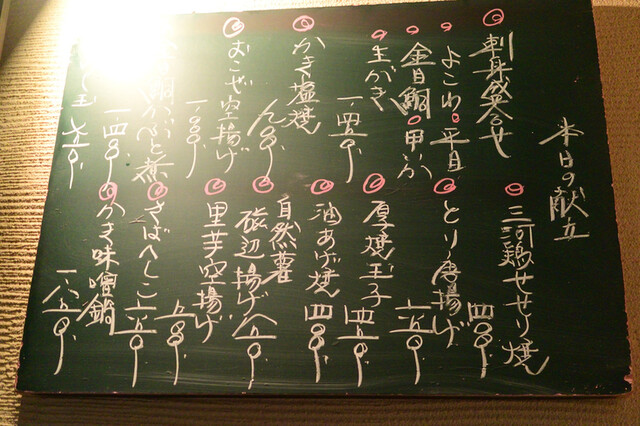 本日の献立
刺身盛合せ
よこわ 平目
金目鯛 甲いか
生がき
一、四五〇
かき塩焼
八〇〇
おこぜ空揚げ
一、八〇〇
煮
一、四〇〇
玉
七五〇
三河鶏せせり焼
四八〇
とり唐揚げ
六五〇
厚焼玉子
四五〇
油あげ焼
四八〇
自然薯
磯辺揚げ
八五〇
里芋空揚げ
五八〇
さばへしこ
六五〇
かき味噌鍋
一、八五〇